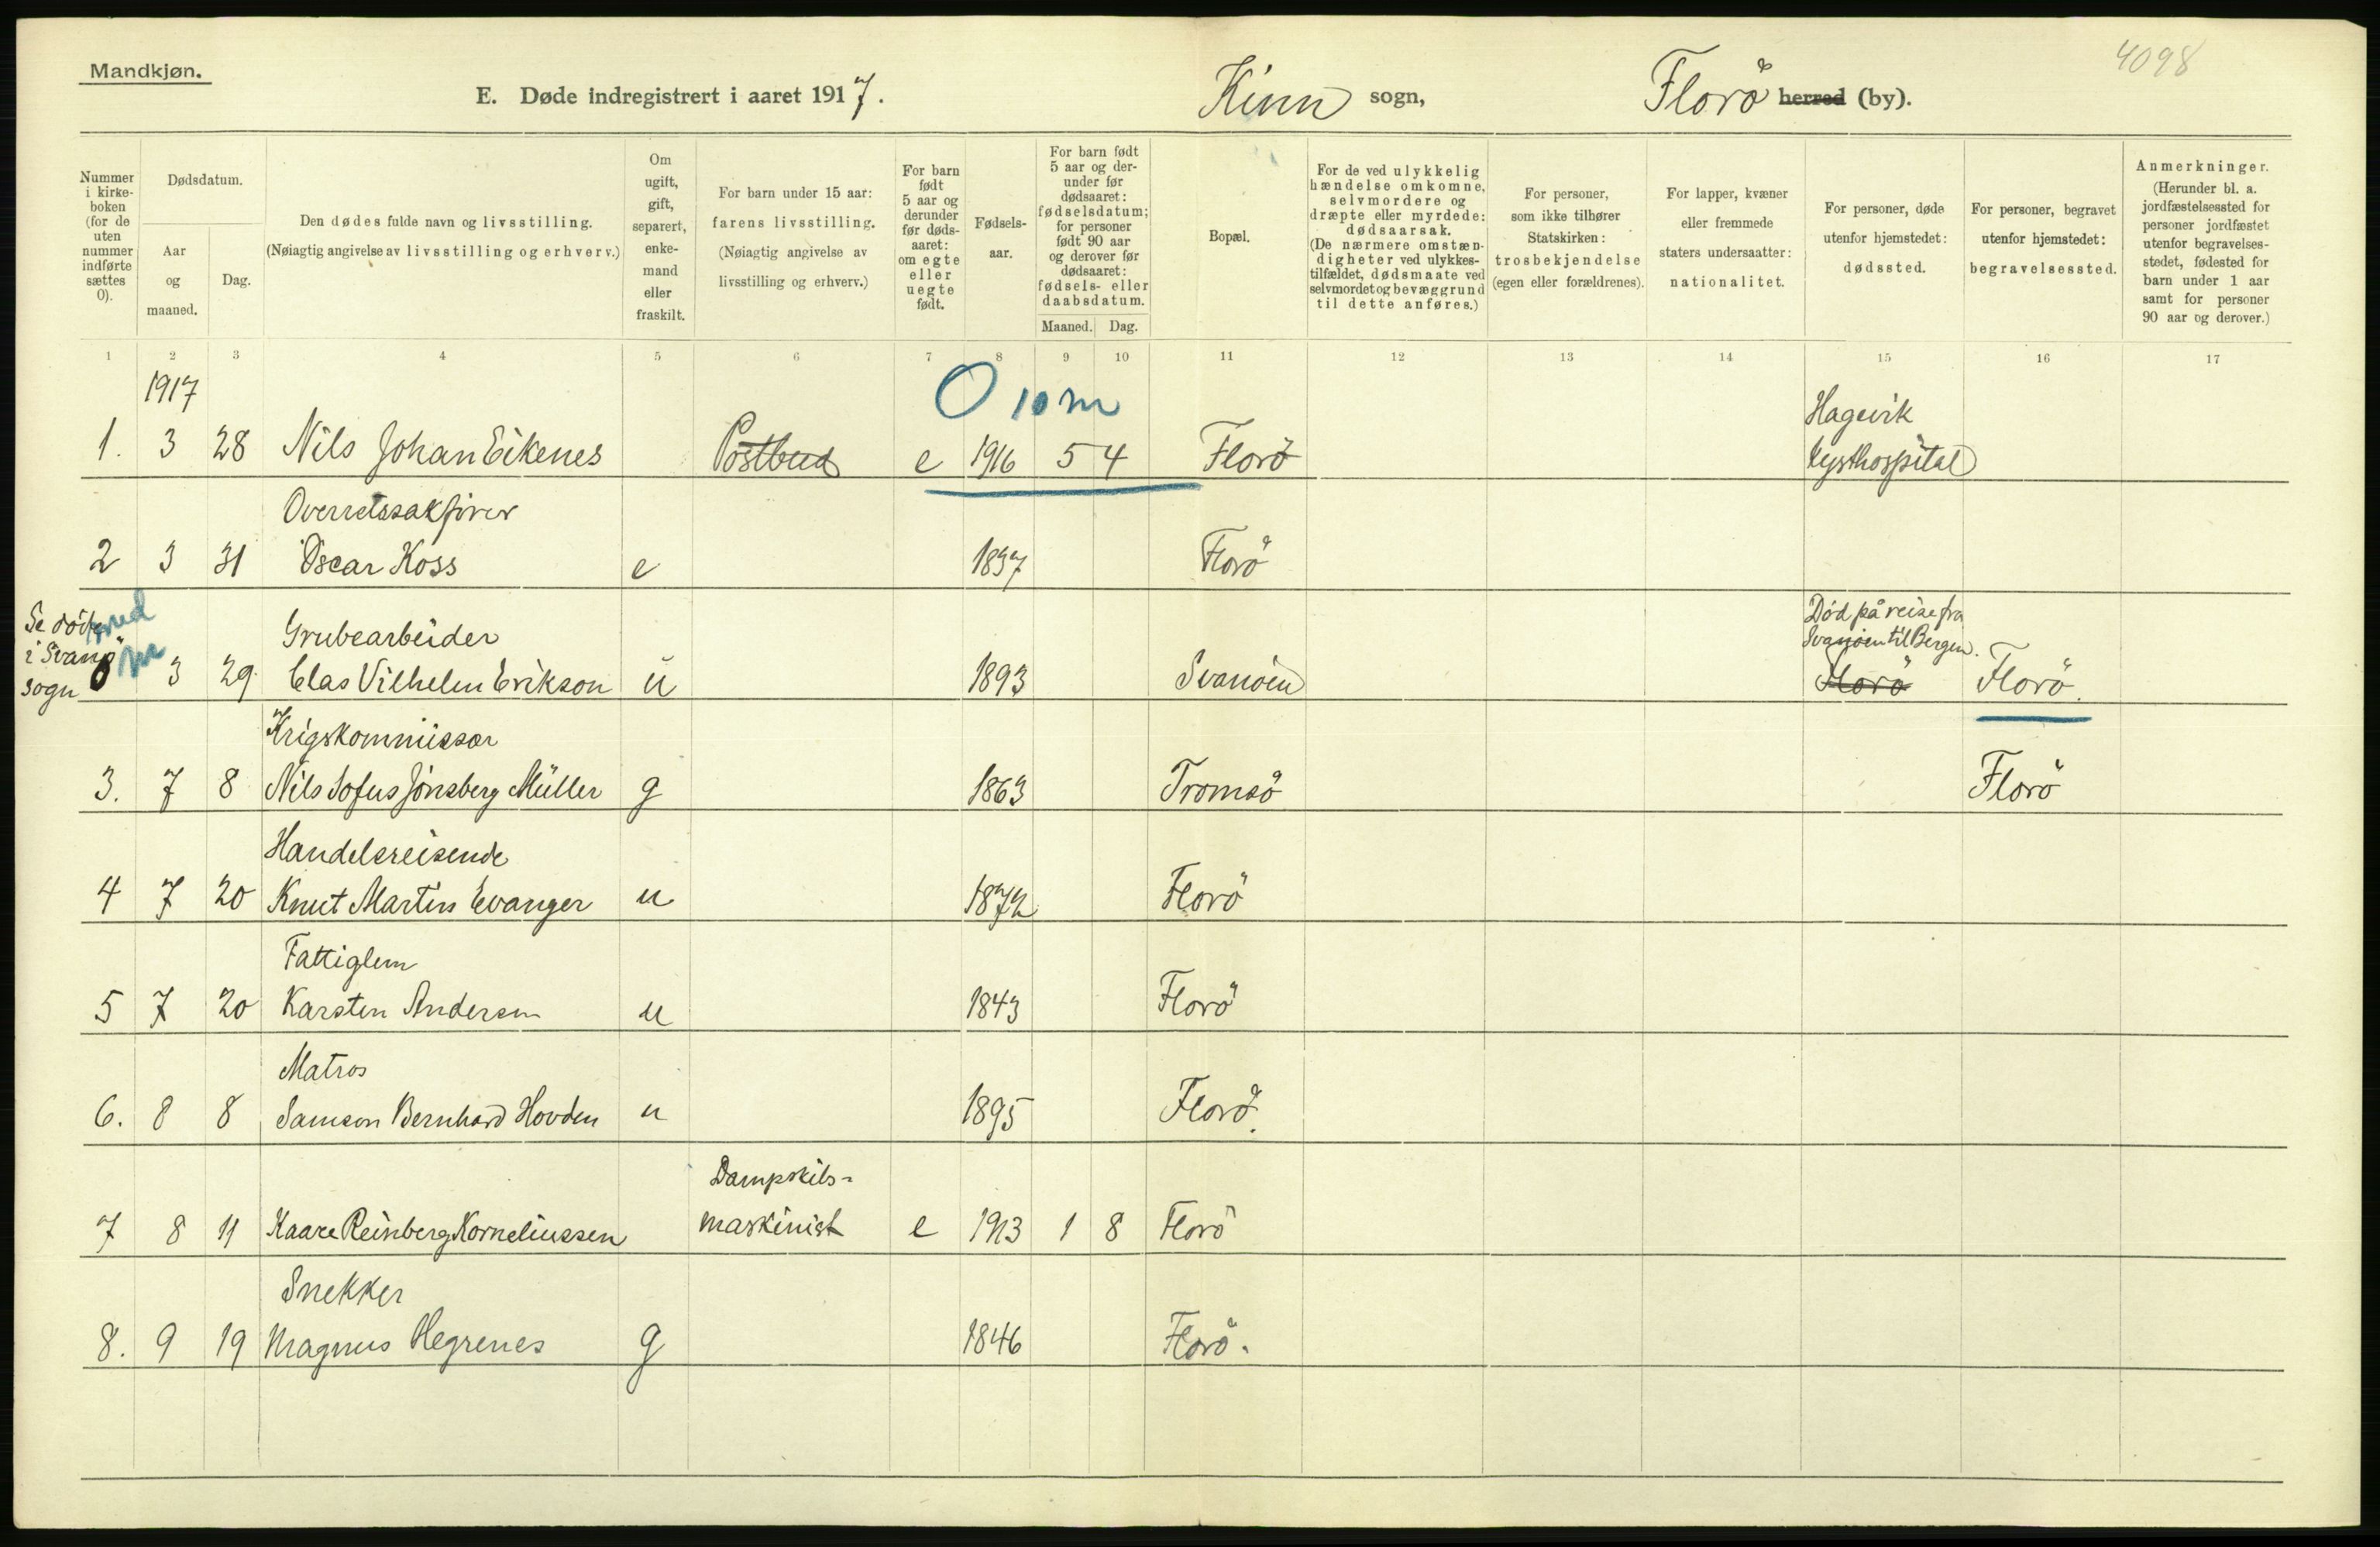 Mandkjøn.
4098
E. Døde indregistrert i aaret 1917. Kinn sogn, Florö herred (by).
Nummer i kirke-boken (for de uten nummer indførte sættes 0).
Dødsdatum.
Aar og maaned.
Dag.
Den dødes fulde navn og livsstilling.
(Nøiagtig angivelse av livsstilling og erhverv.)
Om ugift, gift, separert, enke-mand eller fraskilt.
For barn under 15 aar:
farens livsstilling.
(Nøiagtig angivelse av livsstilling og erhverv.)
For barn født 5 aar og derunder før døds-aaret: om egte eller uegte født.
Fødsels-aar.
For barn født 5 aar og der-under før dødsaaret: fødselsdatum; for personer født 90 aar og derover før dødsaaret: fødsels- eller daabsdatum.
Maaned. Dag.
Bopæl.
For de ved ulykkelig hændelse omkomne, selvmordere og dræpte eller myrdede: dødsaarsak.
(De nærmere omstæn-digheter ved ulykkes-tilfældet, dødsmaate ved selvmordet og bevæggrund til dette anføres.)
For personer, som ikke tilhører Statskirken: trosbekjendelse (egen eller forældrenes).
For lapper, kvæner eller fremmede staters undersaatter: nationalitet.
For personer, døde utenfor hjemstedet: dødssted.
For personer, begravet utenfor hjemstedet: begravelsessted.
Anmerkninger.
(Herunder bl. a. jordfæstelsessted for personer jordfæstet utenfor begravelses-stedet, fødested for barn under 1 aar samt for personer 90 aar og derover.)
1 2 3 4 5 6 7 8 9 10 11 12 13 14 15 16 17
1917
0 10 m
Hagevik
1. 3 28 Nils Johan Eikenes Postbud e 1916 5 4 Florö kysthospital
Overretssakfører
2 3 31 Oscar Koss e 1837 Florö
Se döde
i Svanö
sogn
Grubearbeider
Död på reise fra
Svanöen til Bergen.
0 3 29 Clas Vilhelm Erikson u 1893 Svanöen Florö Florö.
Krigskommissær
3. 7 8 Nils Sofus Jönsberg Müller g 1863 Tromsö Florö
Handelsreisende
4 7 20 Knut Martin Evanger u 1872 Florö
Fattiglem
5 7 20 Karsten Andersen u 1843 Florö
Matros
6. 8 8 Samson Bernhard Hovden u 1895 Florö.
Dampskibs-
7 8 11 Kaare Reinberg Korneliussen maskinist e 1913 1 8 Florö
Snekker
8. 9 19 Magnus Hegrenes g 1846 Florö.